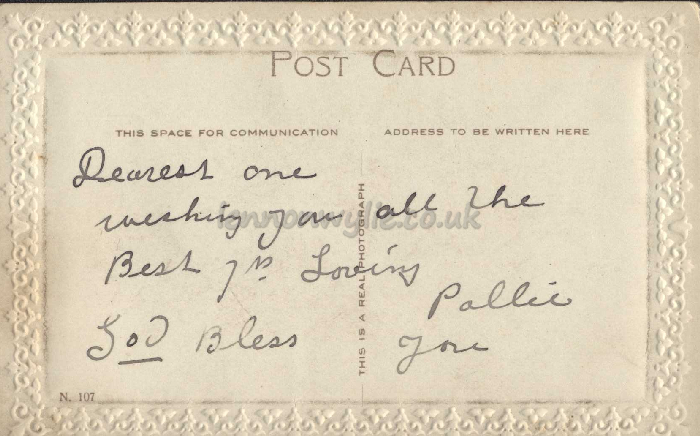 POST CARD
THIS SPACE FOR COMMUNICATION
ADDRESS TO BE WRITTEN HERE
Dearest one
wishing you all the
Best yrs Loving
Pollie
God Bless you
THIS IS A REAL PHOTOGRAPH
lennonwylie.co.uk
N. 107